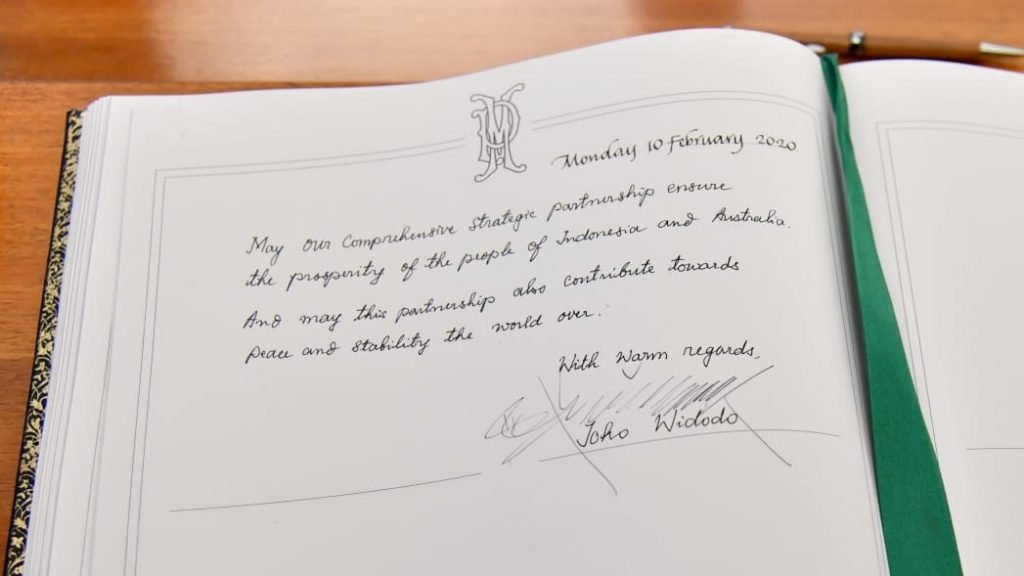 Monday 10 February 2020
May our Comprehensive Strategic partnership ensure
the prosperity of the people of Indonesia and Australia.
And may this partnership also contribute towards
peace and stability the world over.
With warm regards,
Joko Widodo